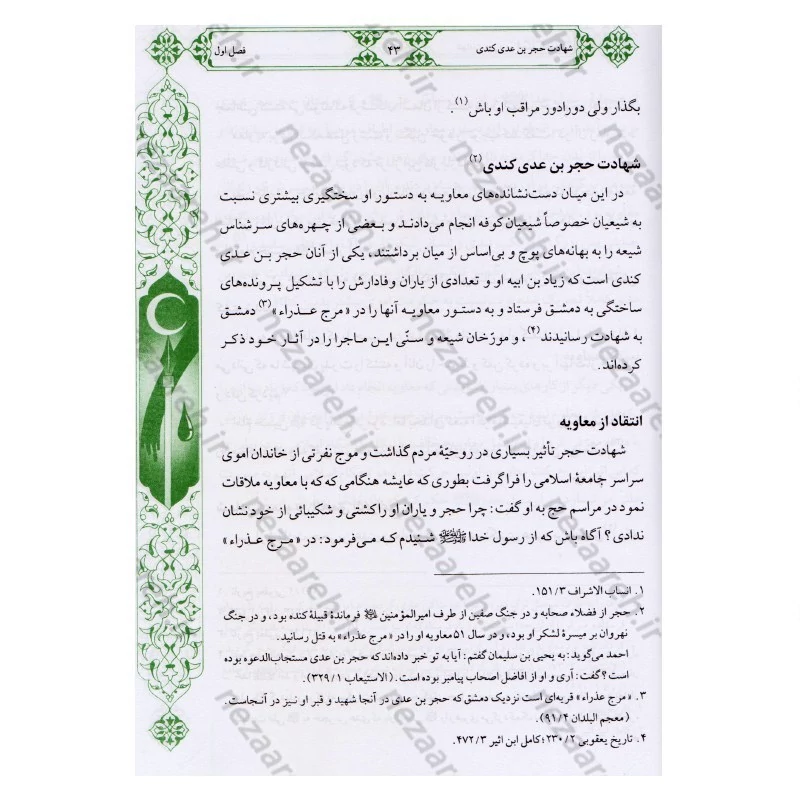 شهادت حجر بن عدی کندی
۴۳
فصل اول
بگذار ولی دورادور مراقب او باش(۱).
شهادت حجر بن عدی کندی(۲)
در این میان دست‌نشانده‌های معاویه به دستور او سختگیری بیشتری نسبت
به شیعیان خصوصاً شیعیان کوفه انجام می‌دادند و بعضی از چهره‌های سرشناس
شیعه را به بهانه‌های پوچ و بی‌اساس از میان برداشتند، یکی از آنان حجر بن عدی
کندی است که زیاد بن ابیه او و تعدادی از یاران وفادارش را با تشکیل پرونده‌های
ساختگی به دمشق فرستاد و به دستور معاویه آنها را در «مرج عذراء»(۳) دمشق
به شهادت رسانیدند(۴)، و مورّخان شیعه و سنّی این ماجرا را در آثار خود ذکر
کرده‌اند.
انتقاد از معاویه
شهادت حجر تأثیر بسیاری در روحیّهٔ مردم گذاشت و موج نفرتی از خاندان اموی
سراسر جامعهٔ اسلامی را فراگرفت بطوری که عایشه هنگامی که که با معاویه ملاقات
نمود در مراسم حج به او گفت: چرا حجر و یاران او راکشتی و شکیبائی از خود نشان
ندادی؟ آگاه باش که از رسول خدا ﷺ شنیدم که می‌فرمود: در «مرج عذراء»
۱. انساب الاشراف ۱۵۱/۳.
۲. حجر از فضلاء صحابه و در جنگ صفین از طرف امیرالمؤمنین فرماندهٔ قبیلهٔ کنده بود، و در جنگ
نهروان بر میسرهٔ لشکر او بود، و در سال ۵۱ معاویه او را در «مرج عذراء» به قتل رسانید.
احمد می‌گوید: به یحیی بن سلیمان گفتم: آیا به تو خبر داده‌اند که حجر بن عدی مستجاب‌الدعوه بوده
است؟ گفت: آری و او از افاضل اصحاب پیامبر بوده است. (الاستیعاب ۳۲۹/۱).
۳. «مرج عذراء» قریه‌ای است نزدیک دمشق که حجر بن عدی در آنجا شهید و قبر او نیز در آنجاست.
(معجم البلدان ۹۱/۴)
۴. تاریخ یعقوبی ۲۳۰/۲؛ کامل ابن اثیر ۴۷۲/۳.
nezaareh.ir